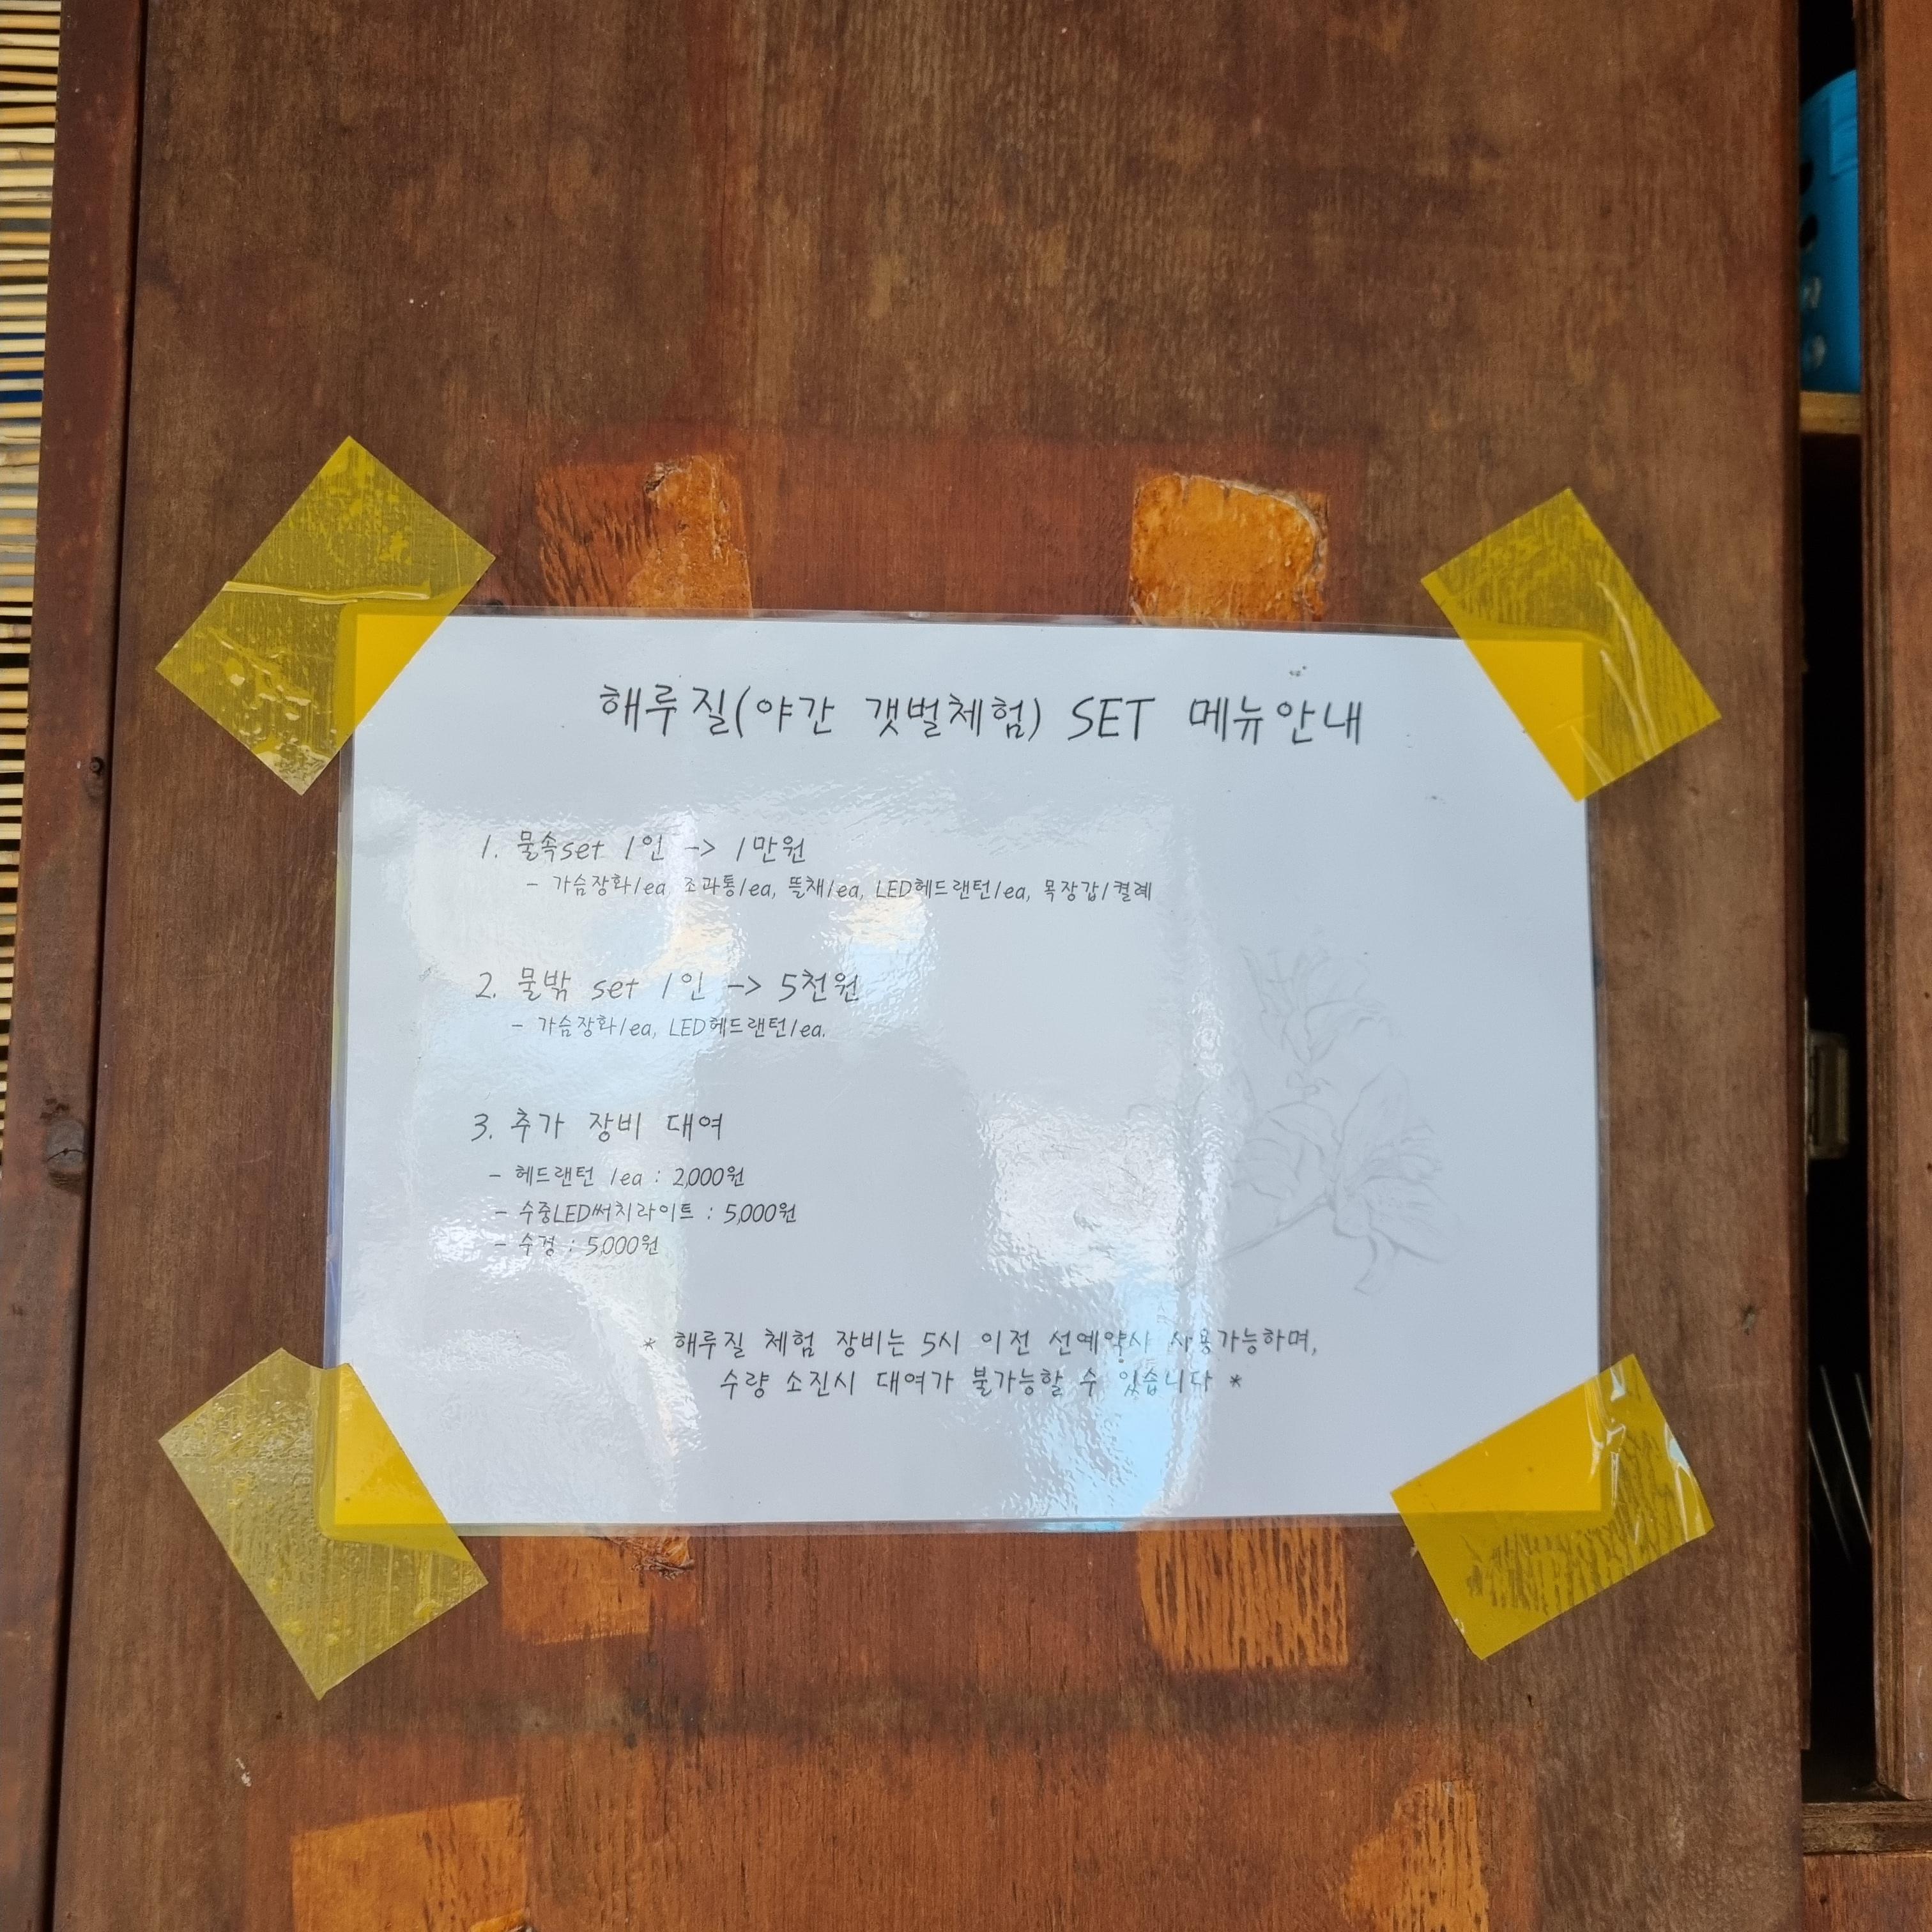 해루질(야간 갯벌체험) SET 메뉴안내
1. 물속set 1인 -> 1만원
- 가슴장화1ea, 조과통1ea, 뜰채1ea, LED헤드랜턴1ea, 목장갑1켤레
2. 물밖 set 1인 -> 5천원
- 가슴장화1ea, LED헤드랜턴1ea.
3. 추가 장비 대여
- 헤드랜턴 1ea : 2,000원
- 수중LED써치라이트 : 5,000원
- 수경 : 5,000원
* 해루질 체험 장비는 5시 이전 선예약시 사용가능하며,
수량 소진시 대여가 불가능할 수 있습니다 *